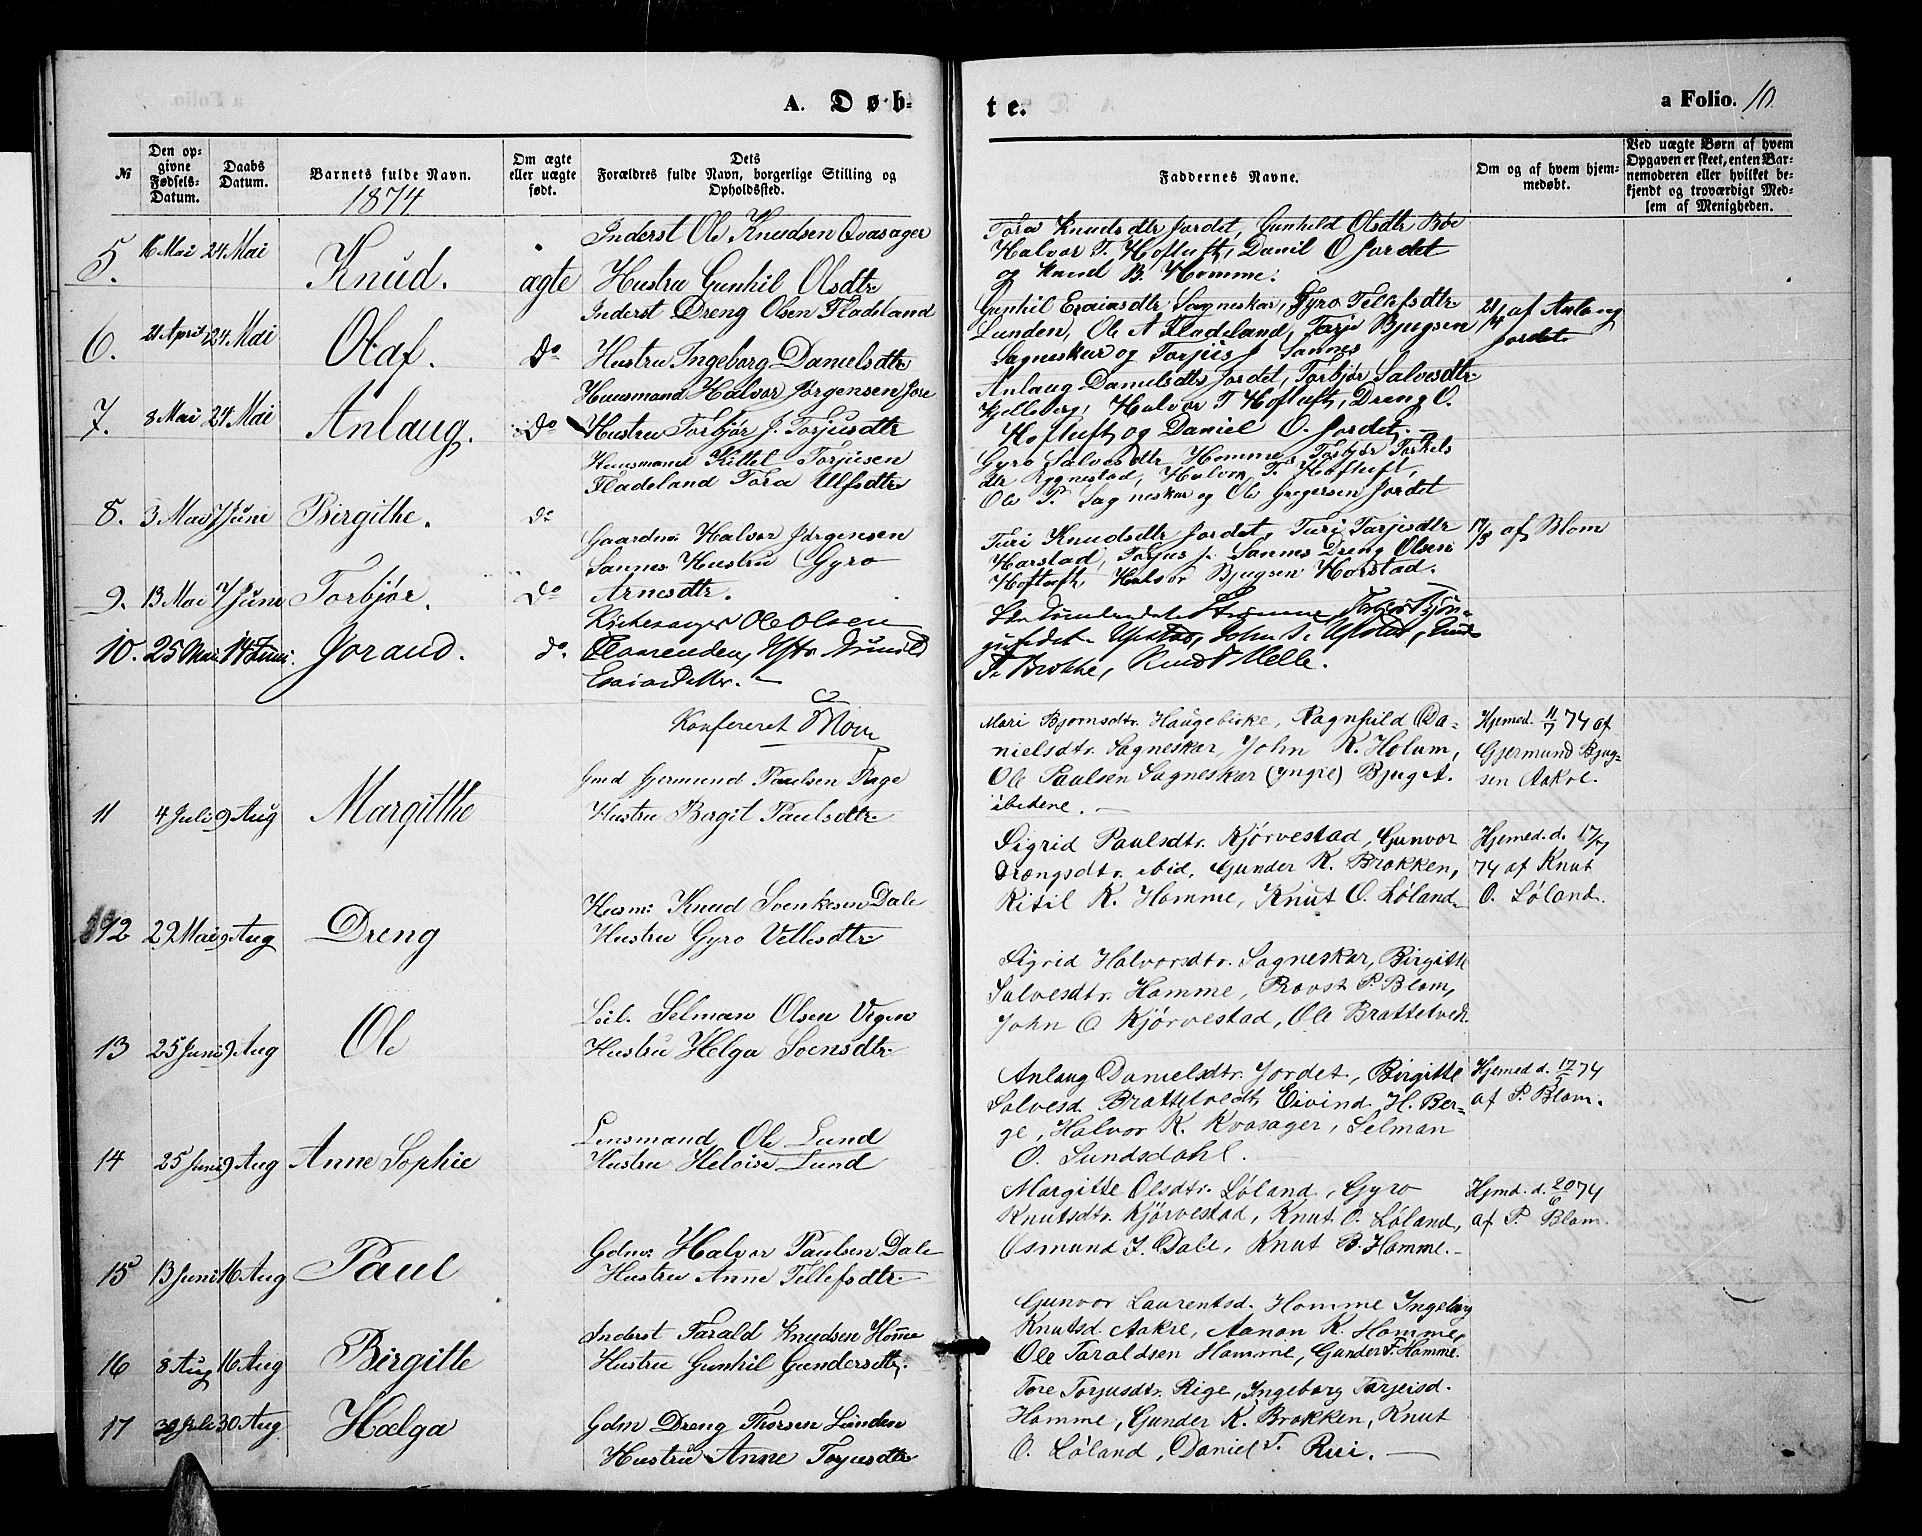 A. Døb-
te.
a Folio. 10.
№
Den op-
givne
Fødsels-
Datum.
Daabs
Datum.
Barnets fulde Navn.
1874
Om ægte
eller uægte
født.
Dets
Forældres fulde Navn, borgerlige Stilling og
Opholdssted.
Faddernes Navne.
Om og af hvem hjem-
medøbt.
Ved uægte Børn af hvem
Opgaven er skeet, enten Bar-
nemoderen eller hvilket be-
kjendt og troværdigt Med-
lem af Menigheden.
5. 16 Mai 24 Mai Knud. ægte
Inderst Ole Knudsen Qvasager
Hustru Gunhil Olsdtr
Tora Knudsdtr Jordet, Gunhild Olsdtr Bøe
Halvor T. Hofluft, Daniel O Jordet
og Knud B. Homme.
6. 21 April 24 Mai Olaf. Do
Inderst Dreng Olsen Fladeland
Hustru Ingeborg Danielsdtr
Gunhil Esaiasdtr Sagneskar, Gyro Tellefsdtr
Lunden, Ole A Fladeland, Tarje Bjugsen
Sagneskar og Torjus J Sannes
21/4 af Anlaug
Jordet
7. 8 Mai 24 Mai Anlaug. Do
Huusmand Halvor Jørgensen Jore
Hustru Torbjør J. Torjusdtr
Anlaug Danielsdtr Jordet, Torbjør Salvesdtr
Kjelleberg, Halvor T Hofluft, Dreng O.
Hofluft og Daniel O. Jordet.
8. 3 Mai 7 Juni Birgithe. do
Huusmand Kittel Torjusen
Fladeland Tora Ulfsdtr
Gyro Salvesdtr Homme, Torbjør Torkels
dtr Rygnestad, Halvor T. Hofluft,
Ole P. Sagneskar og Ole Gregersen Jordet
9. 13 Mai 7 Juni Torbjør. Do
Gaardm: Halvor Jørgensen
Sannes Hustru Gyro
Arnesdtr.
Turi Knudsdtr Jordet, Turi Tarjesdtr
Harstad, Torjus J. Sannes Dreng Olsen
Hofluft, Halvor Bjugsen Horstad.
17/5 af Blom
10. 25 Mai 14 Juni Jorand. do.
Kirkesanger Ole Olsen
Esaiasdatter.
Upstad, John
Brokke, Knud Helle.
Konfereret Mou
11 4 Juli 9 Aug Margitthe
Gmd Gjermund Paulsen Rige
Hustru Birgit Paulsdtr.
Mari Bjørnsdtr. Haugebirke, Ragnhild Da-
nielsdtr. Sagneskar, John K. Holum,
Ole Paulsen Sagneskar (yngre) Bjug A.
ibidene.
Hjemed. 11/7 74 af
Gjermund Bjug-
sen Aakre.
12 29 Mai 9 Aug Dreng
Husm: Knud Svenkesen Dale
Hustru Gyro Vellesdtr
Sigrid Paulsdtr. Kjørvestad, Gunvor
Drængsdtr. ibid, Gunder K. Brokken,
Kitil K. Homme, Knut O. Løland.
Hjemed. d. 17/7
74 af Knut
O. Løland.
13 25 Juni 9 Aug Ole
Leil. Selman Olsen Vegen
Hustru Helga Svensdtr.
Sigrid Halvorsdtr. Sagneskar, Birgitte
Salvesdtr. Homme, Provst P. Blom,
John O Kjørvestad, Ole Brattetvedt.
14 25 Juni 9 Aug Anne Sophie
Lensmand Ole Lund
Hustru Heloise Lund
Anlaug Danielsdtr. Jordet, Birgitte
Salvesd. Brattetvedt, Eivind H. Ber-
ge, Halvor K. Kvasager, Selman
O. Sundsdahl.
Hjemed d. 17/7 74
af P. Blom.
15 13 Juni 16 Aug Paul
Gdm: Halvor Paulsen Dale
Hustru Anne Tellefsdtr.
Margitte Olsdtr. Løland, Gyro
Knutsdtr. Kjørvestad, Knut O. Løland,
Osmund T. Dale, Knut B. Homme.
Hjmd. d. 20/6 74
af P. Blom.
16 8 Aug 16 Aug Birgitte
Inderst Tarald Knudsen Home
Hustru Gunhil Gundersdtr.
Gunvor Laurentsd. Homme Ingeborg
Knutsd. Aakre, Aanon K. Homme,
Ole Taraldsen Homme, Gunder T. Homme.
17 30 Juli 30 Aug Hælga
Gdm Dreng Thorsen Lunden
Hustru Anne Torjusdtr
Tore Torjusdtr. Rige, Ingeborg Tarjeisd.
Homme, Gunder K. Brokken, Knut
O. Løland, Daniel T. Rui.